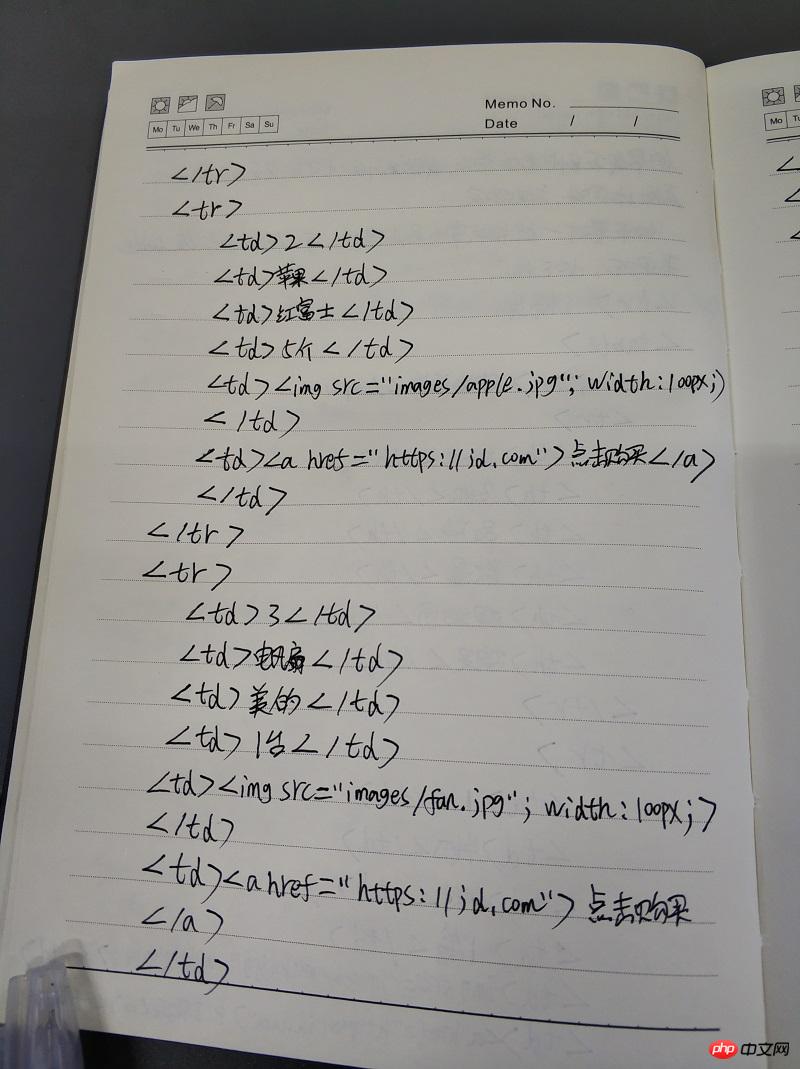 Memo No.
Mo Tu We Th Fr Sa Su
Date / /
</tr>
<tr>
<td>2</td>
<td>苹果</td>
<td>红富士</td>
<td>5个</td>
<td><img src="images/apple.jpg"; width:100px;)
</td>
<td><a href="https://jd.com">点击购买</a>
</td>
</tr>
<tr>
<td>3</td>
<td>电风扇</td>
<td>美的</td>
<td>1台</td>
<td><img src="images/fan.jpg"; width:100px;>
</td>
<td><a href="https://jd.com">点击购买
</a>
</td>
Mo
php中文网